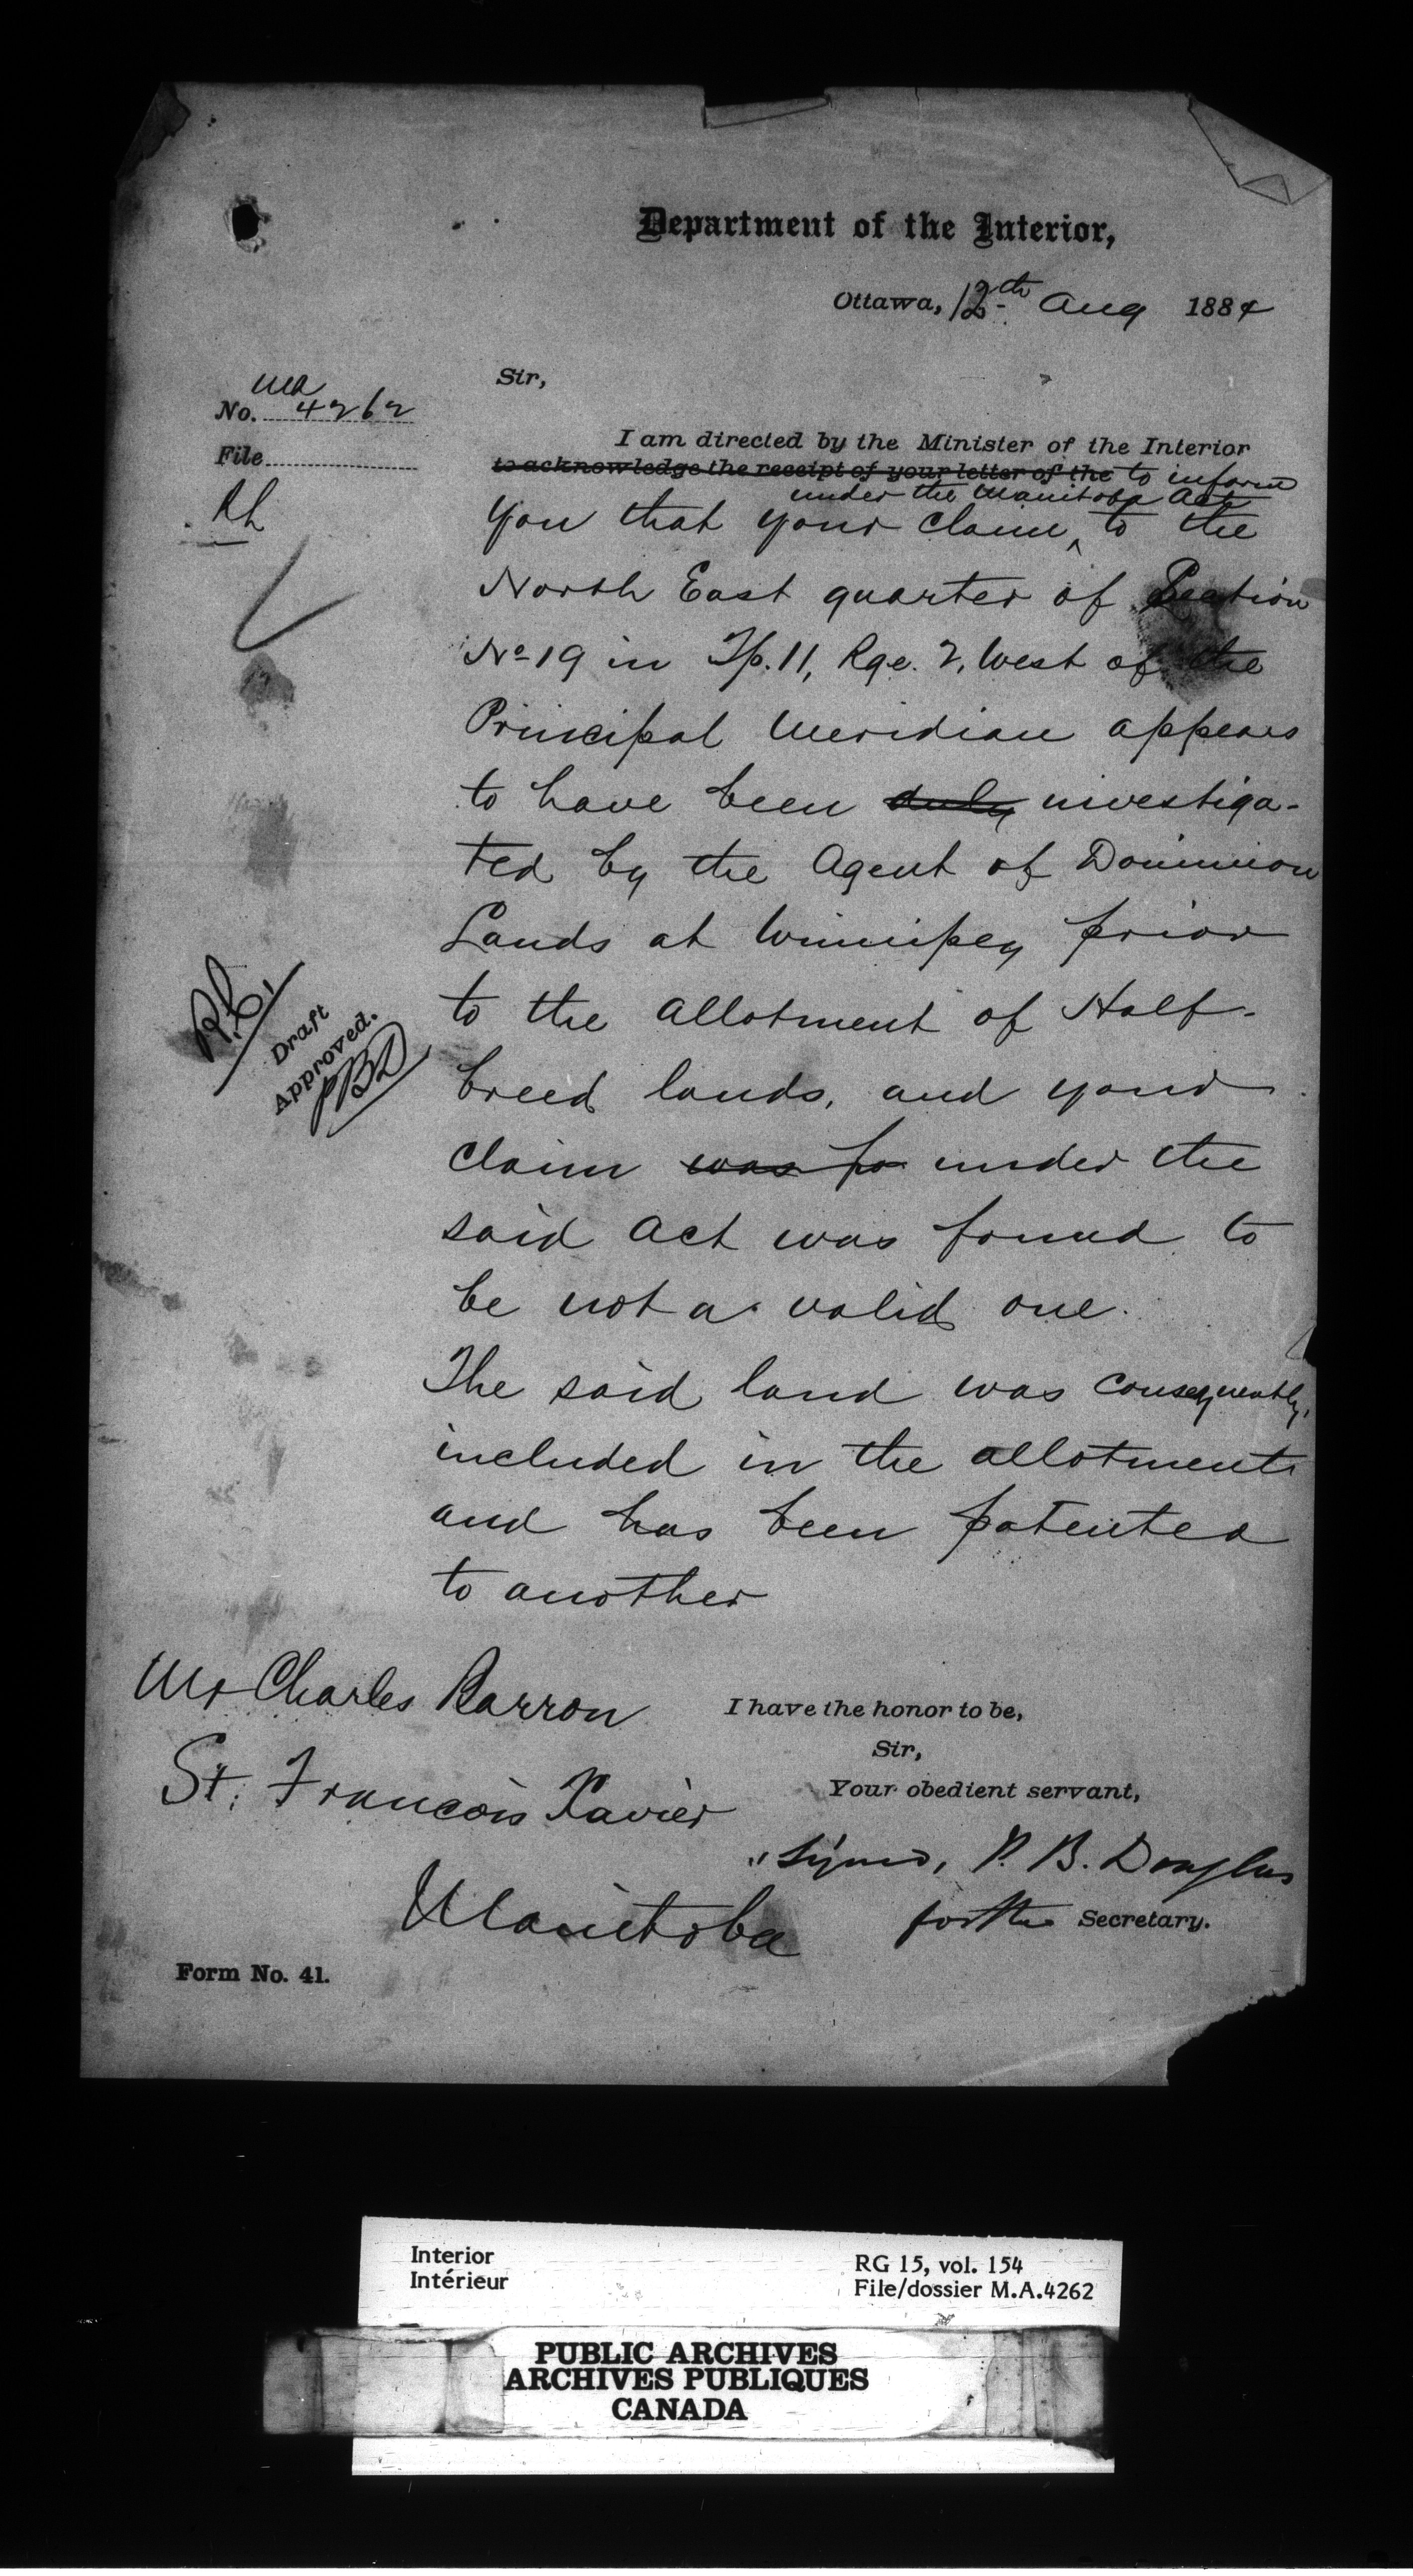 Department of the Interior,
Ottawa, 12th Aug 1884
Sir,
MA
No. 4262
File
I am directed by the Minister of the Interior
to acknowledge the receipt of your letter of the to inform
under the Manitoba Act
you that your claim ^ to the
North East quarter of Section
No 19 in Tp. 11, Rge. 2, West of the
Principal Meridian appears
to have been duly investiga-
ted by the Agent of Dominion
Lands at Winnipeg prior
to the allotment of Half-
breed lands, and your
claim was fo under the
said Act was found to
be not a valid one.
The said land was consequently,
included in the allotment
and has been patented
to another
Draft
Approved.
PBD
Mr Charles Barron
St. Francois Xavier
Manitoba
I have the honor to be,
Sir,
Your obedient servant,
"Signed, P. B. Douglas
for the Secretary.
Form No. 41.
Interior
Intérieur
RG 15, vol. 154
File/dossier M.A.4262
PUBLIC ARCHIVES
ARCHIVES PUBLIQUES
CANADA